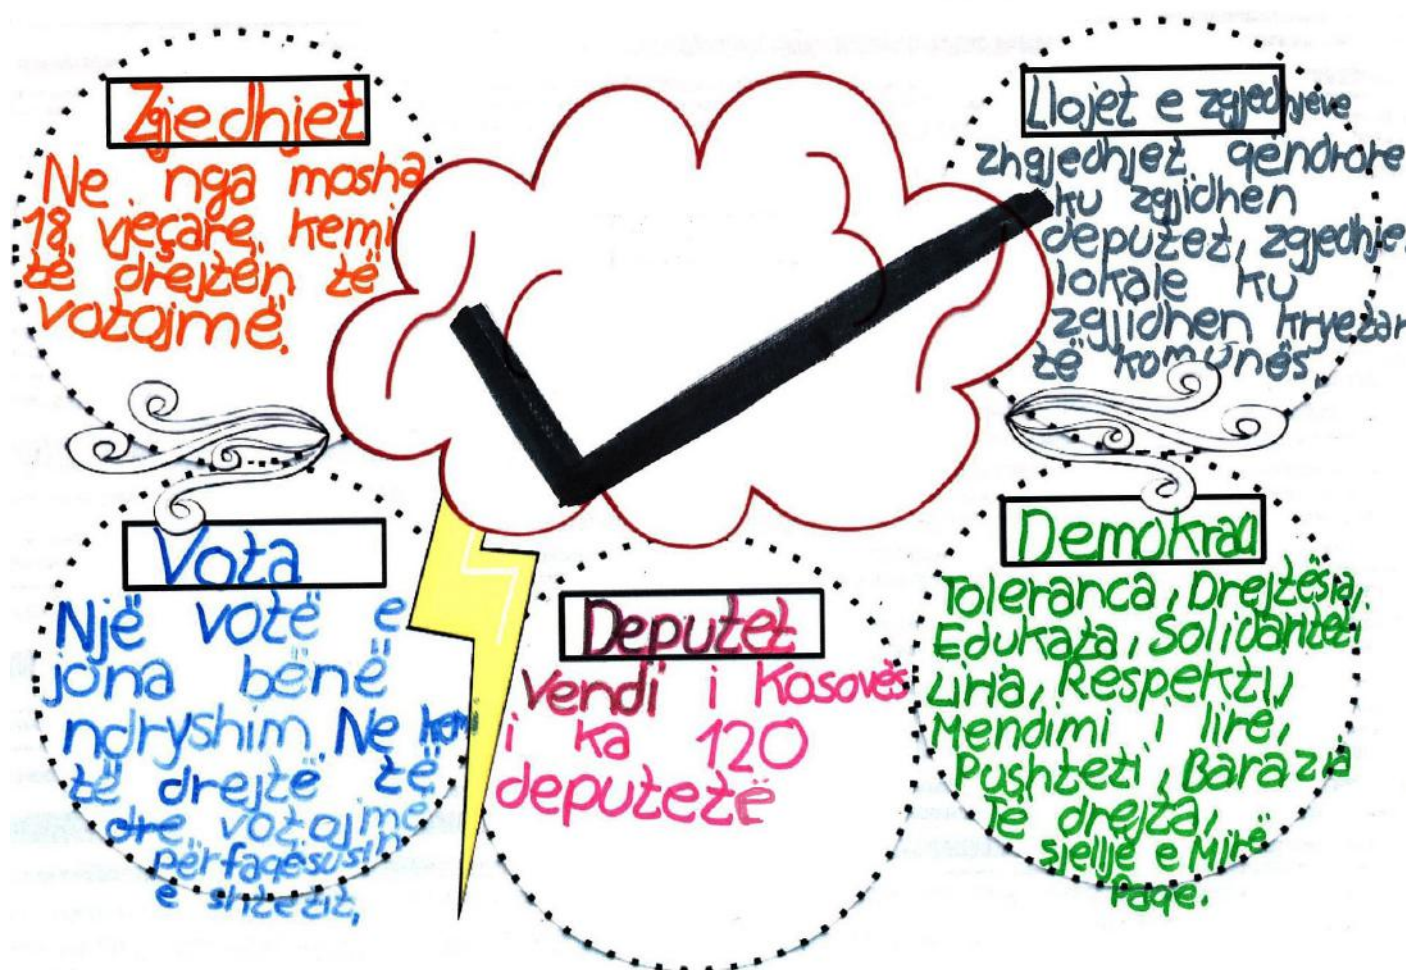 Zgjedhjet
Ne nga mosha
18. vjeçare. kemi
të drejtën të
votojmë.
Llojet e zgjedhjeve
zhgjedhjet qëndrore
ku zgjidhen
deputet, zgjedhje
lokale ku
zgjidhen kryetar
të komunës,
Vota
Një votë e
jona bënë
ndryshim. Ne kemi
të drejtë të
dre votojmë
përfaqësusin
e shtetit,
Deputet
Vendi i Kosovës
i ka 120
deputetë
Demokraci
Toleranca, Drejtësia,
Edukata, Solidariteti
Liria, Respekti,
Mendimi i lirë,
Pushteti, Barazia
Të drejta,
sjellje e Mirë
Paqe.